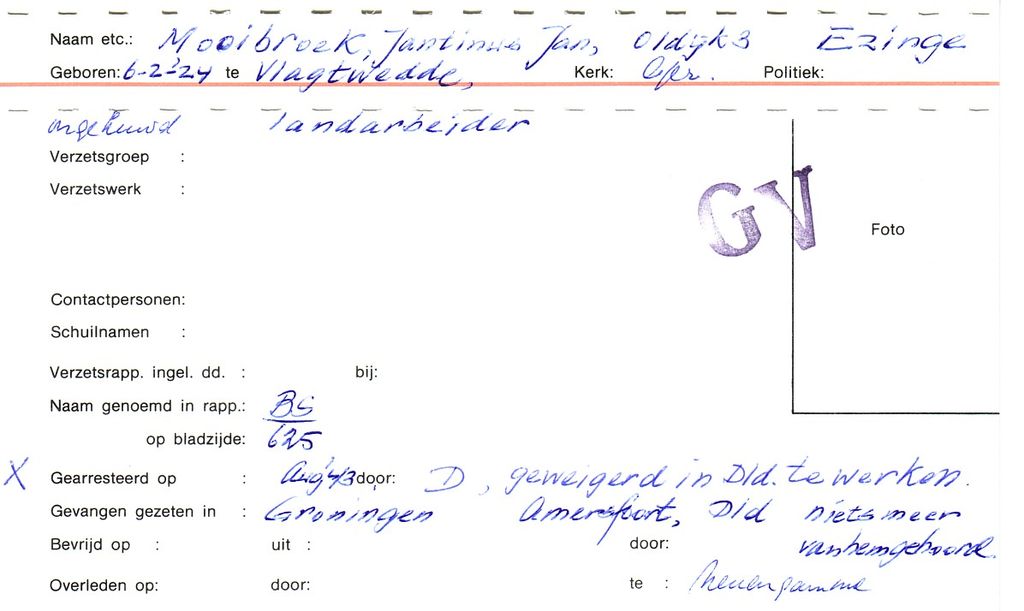 Naam etc.: Mooibroek, Jantinus Jan, Oldijk 3 Ezinge
Geboren: 6-2-'24 te Vlagtwedde, Kerk: Ger. Politiek:
ongehuwd landarbeider
Verzetsgroep :
Verzetswerk :
GV
Foto
Contactpersonen:
Schuilnamen :
Verzetsrapp. ingel. dd. : bij:
Naam genoemd in rapp.: BS
op bladzijde: 625
X Gearresteerd op : Aug '43 door: D, geweigerd in Dld. te werken.
Gevangen gezeten in : Groningen Amersfoort, Dld niets meer
Bevrijd op : uit : door: van hem gehoord.
Overleden op: door: te : Neuengamme